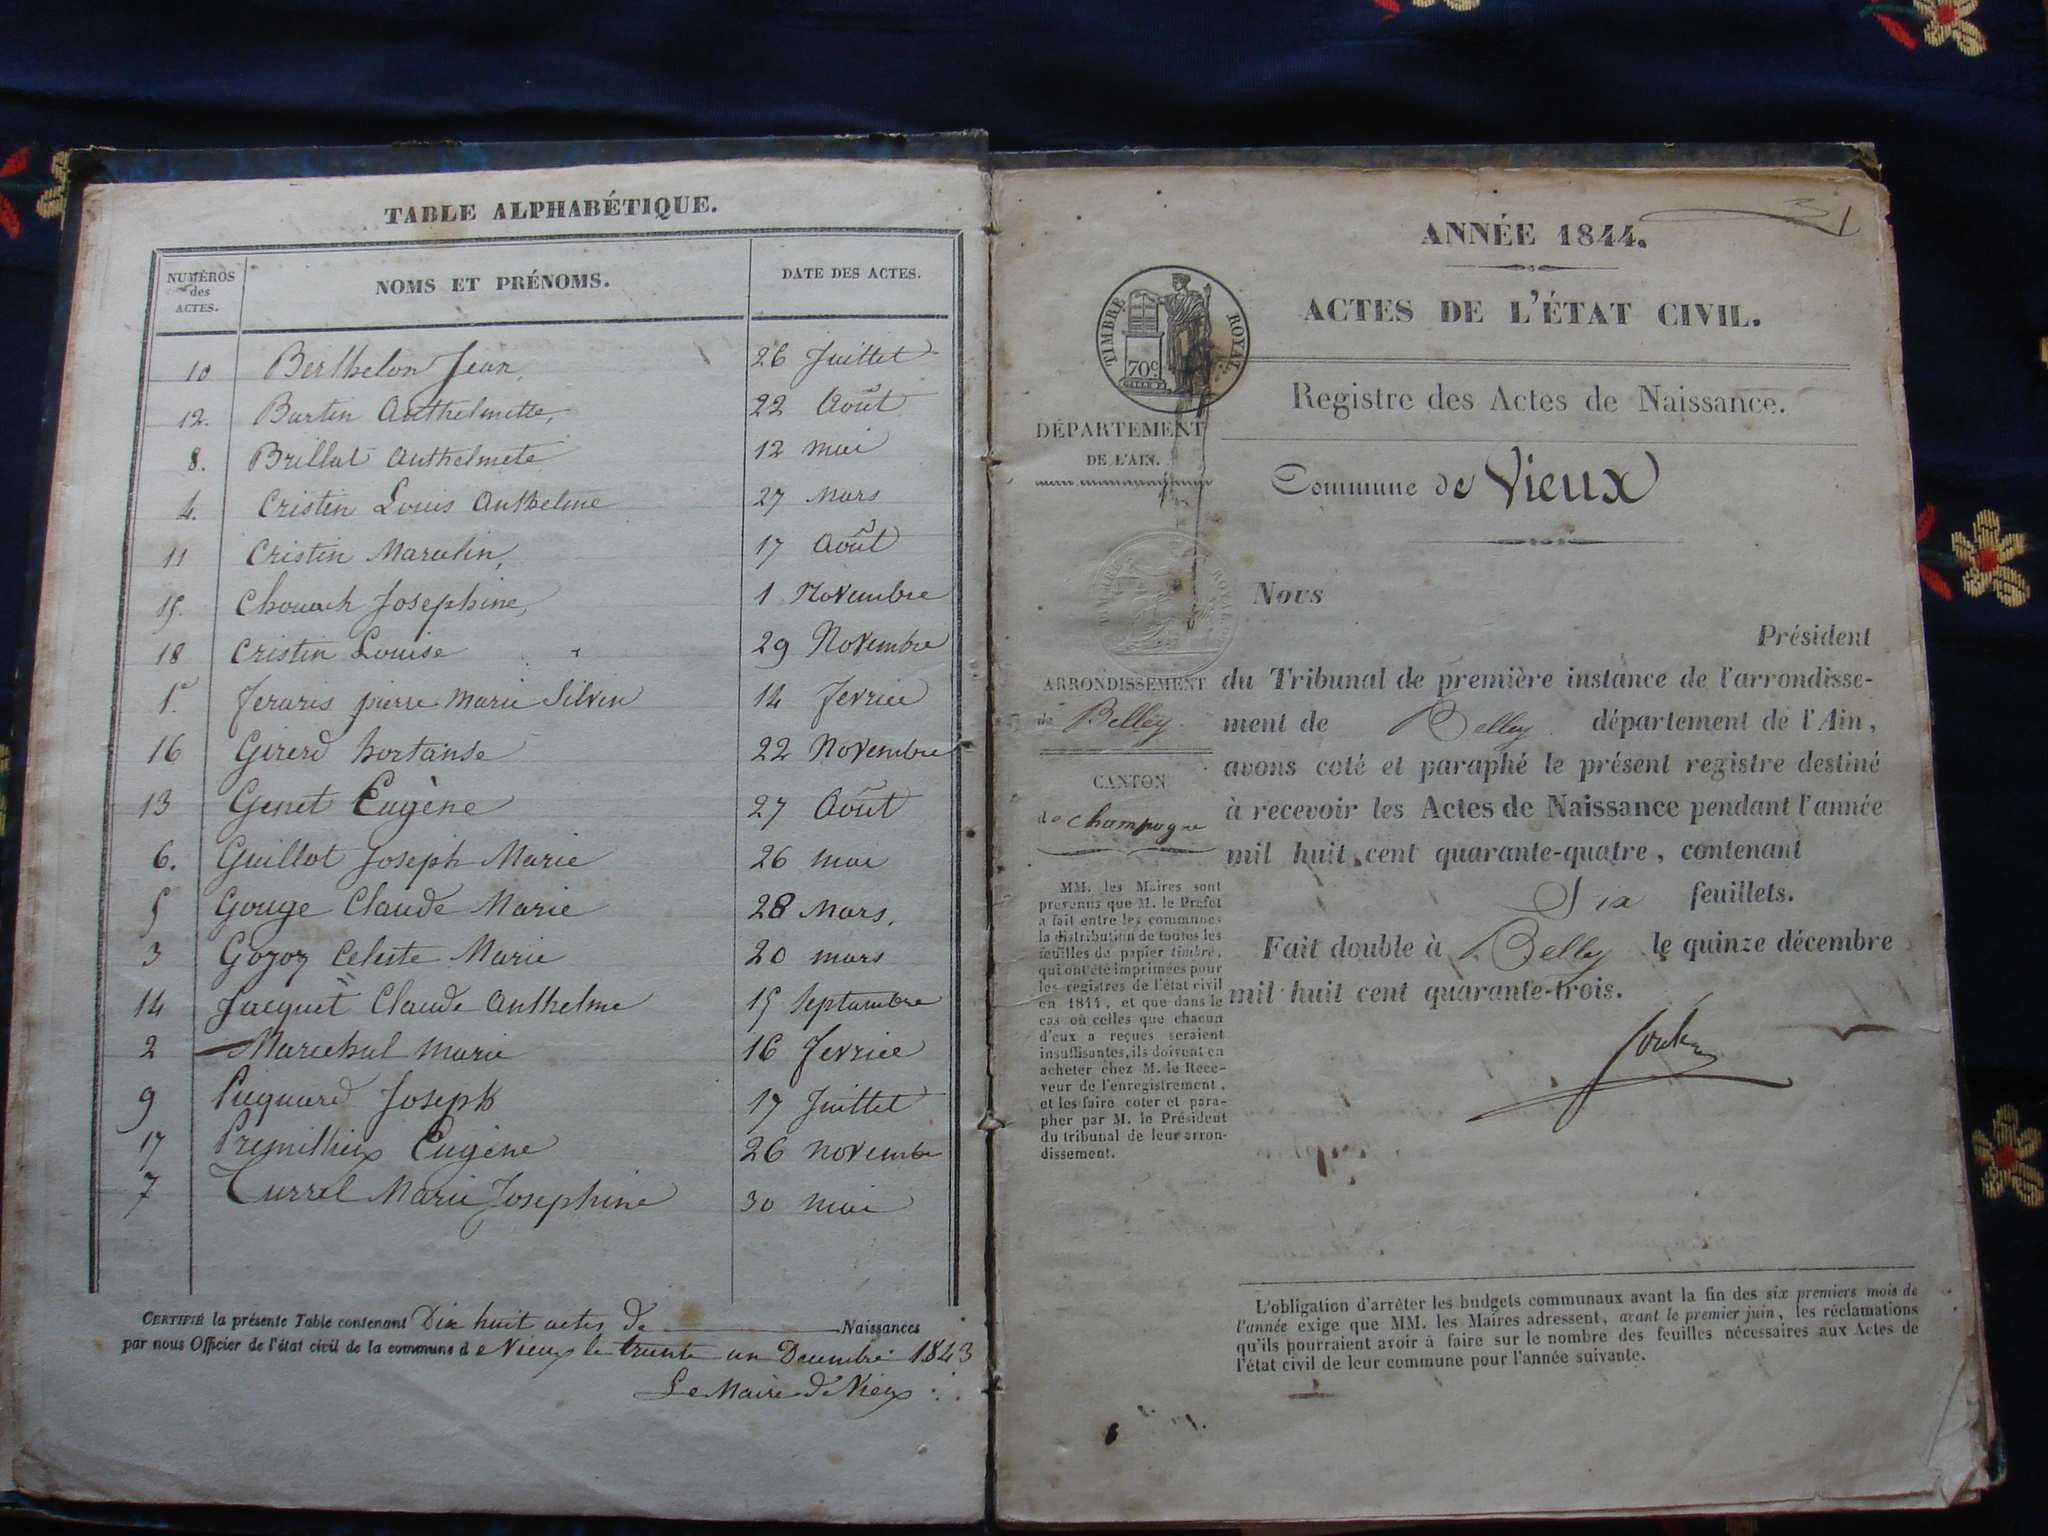 TABLE ALPHABÉTIQUE.
NUMÉROS des ACTES. NOMS ET PRÉNOMS. DATE DES ACTES.
10 Berthelon Jean, 26 Juillet
12. Burtin Anthelmette, 22 Août
8. Brillat Anthelmete 12 mai
4. Cristin Louis Anthelme 27 Mars
11 Cristin Marcelin, 17 Août
15. Chouach Josephine, 1 Novembre
18 Cristin Louise 29 Novembre
1. Feraris pierre Marie Silvin 14 fevrier
16 Girerd hortanse 22 Novembre
13 Genet Eugène 27 Août
6. Guillot Joseph Marie 26 mai
5 Gouge Claude Marie 28 Mars.
3 Gozoz Celeste Marie 20 mars
14 Jacquet Claude Anthelme 15 Septambre
2 Marechal Marie 16 fevrier
9 Picquard Joseph 17 Juillet
17 Premillieux Eugène 26 Novembre
7 Turrel Marie Josephine 30 mai
CERTIFIÉ la présente Table contenant Dix huit actes de Naissances
par nous Officier de l'état civil de la commune d e Vieux le trente un Decembre 1843
Le Maire de Vieux
ANNÉE 1844.
ACTES DE L'ÉTAT CIVIL.
TIMBRE ROYAL
70c.
Registre des Actes de Naissance.
DÉPARTEMENT
DE L'AIN.
Commune de Vieux
Nous
Président
du Tribunal de première instance de l'arrondisse-
ment de Belley département de l'Ain,
avons coté et paraphé le présent registre destiné
à recevoir les Actes de Naissance pendant l'année
mil huit cent quarante-quatre, contenant
Six feuillets.
Fait double à Belley le quinze décembre
mil huit cent quarante-trois.
ARRONDISSEMENT
de Belley.
CANTON
de Champagne
MM. les Maires sont
prévenus que M. le Préfet
a fait entre les communes
la distribution de toutes les
feuilles de papier timbré,
qui ont été imprimées pour
les registres de l'état civil
en 1844, et que dans le
cas où celles que chacun
d'eux a reçues seraient
insuffisantes, ils doivent en
acheter chez M. le Rece-
veur de l'enregistrement,
et les faire coter et para-
pher par M. le Président
du tribunal de leur arron-
dissement.
L'obligation d'arrêter les budgets communaux avant la fin des six premiers mois de
l'année exige que MM. les Maires adressent, avant le premier juin, les réclamations
qu'ils pourraient avoir à faire sur le nombre des feuilles nécessaires aux Actes de
l'état civil de leur commune pour l'année suivante.